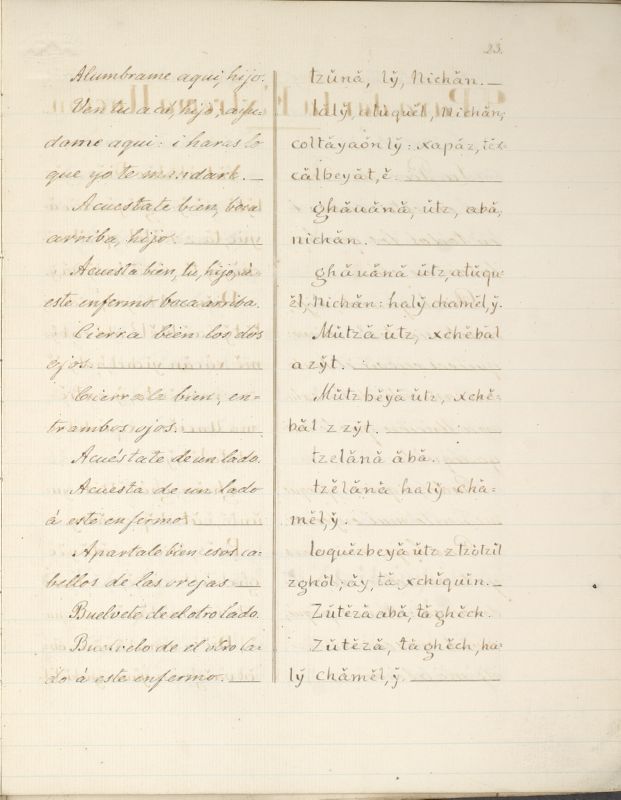 23.
Alumbrame aqui, hijo.
Ven tu acá, hijo, ayu-
dame aqui: i haras lo
que yo te mandaré. —
Acuestate bien, boca
arriba, hijo.
Acuesta bien, tu, hijo, á
este enfermo boca arriba.
Cierra bien los dos
ojos.
Cierrale bien, en-
trambos ojos.
Acuéstate de un lado.
Acuesta de un lado
á este enfermo
Apartale bien esos ca-
bellos de las orejas —
Buelvete de el otro lado.
Buelvelo de el otro la-
do á este enfermo. —
tzŭnă, lў, Nichăn. —
lălў, atuquĕl, Nichăn;
coltăyaón lў: xapáz, tĕx-
călbeyăt, ĕ.
ghăuănă, ŭtz, abă,
nichăn.
ghăuănă ŭtz, atŭqu-
ĕl, Nichăn: halў chamĕl, ў.
Mŭtză ŭtz, xchĕbăl
azўt.
Mŭtzbĕyă ŭtz, xchĕ-
băl zzўt.
tzelănă ăbă.
tzĕlănă halў chă-
mĕl, ў.
loquĕzbeyă ŭtz ztzotzĭl
zghŏl; ăy, tă xchĭquĭn. —
Zŭtĕză abă, tă ghĕch.
Zŭtĕză, tă ghĕch, ha-
lў chămĕl, ў. —